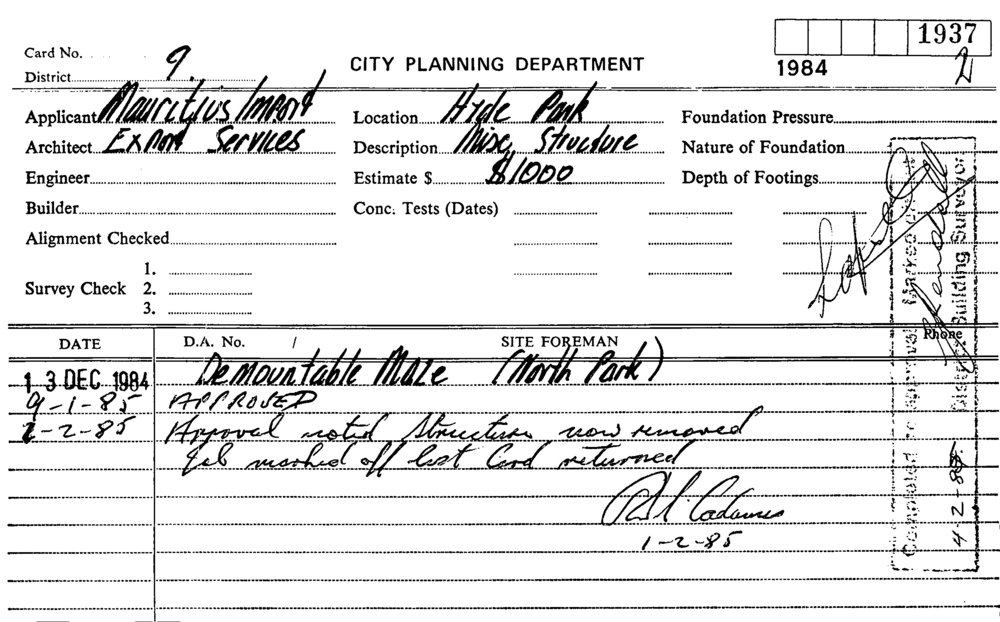 1937
1984
2
Card No.
District 9.
CITY PLANNING DEPARTMENT
Applicant Mauritius Import
Architect Export Services
Engineer
Builder
Alignment Checked
Survey Check
1.
2.
3.
Location Hyde Park
Description Misc, Structure
Estimate $ $1000
Conc. Tests (Dates)
Foundation Pressure
Nature of Foundation
Depth of Footings
DATE
D.A. No. /
SITE FOREMAN
Phone
13 DEC 1984 Demountable Maze (North Park)
9-1-85 APPROVED
1-2-85 Approval noted Structure now removed
Job marked off list Card returned
1-2-85
Completed to approval Marked off
District Building Surveyor
4-2-85